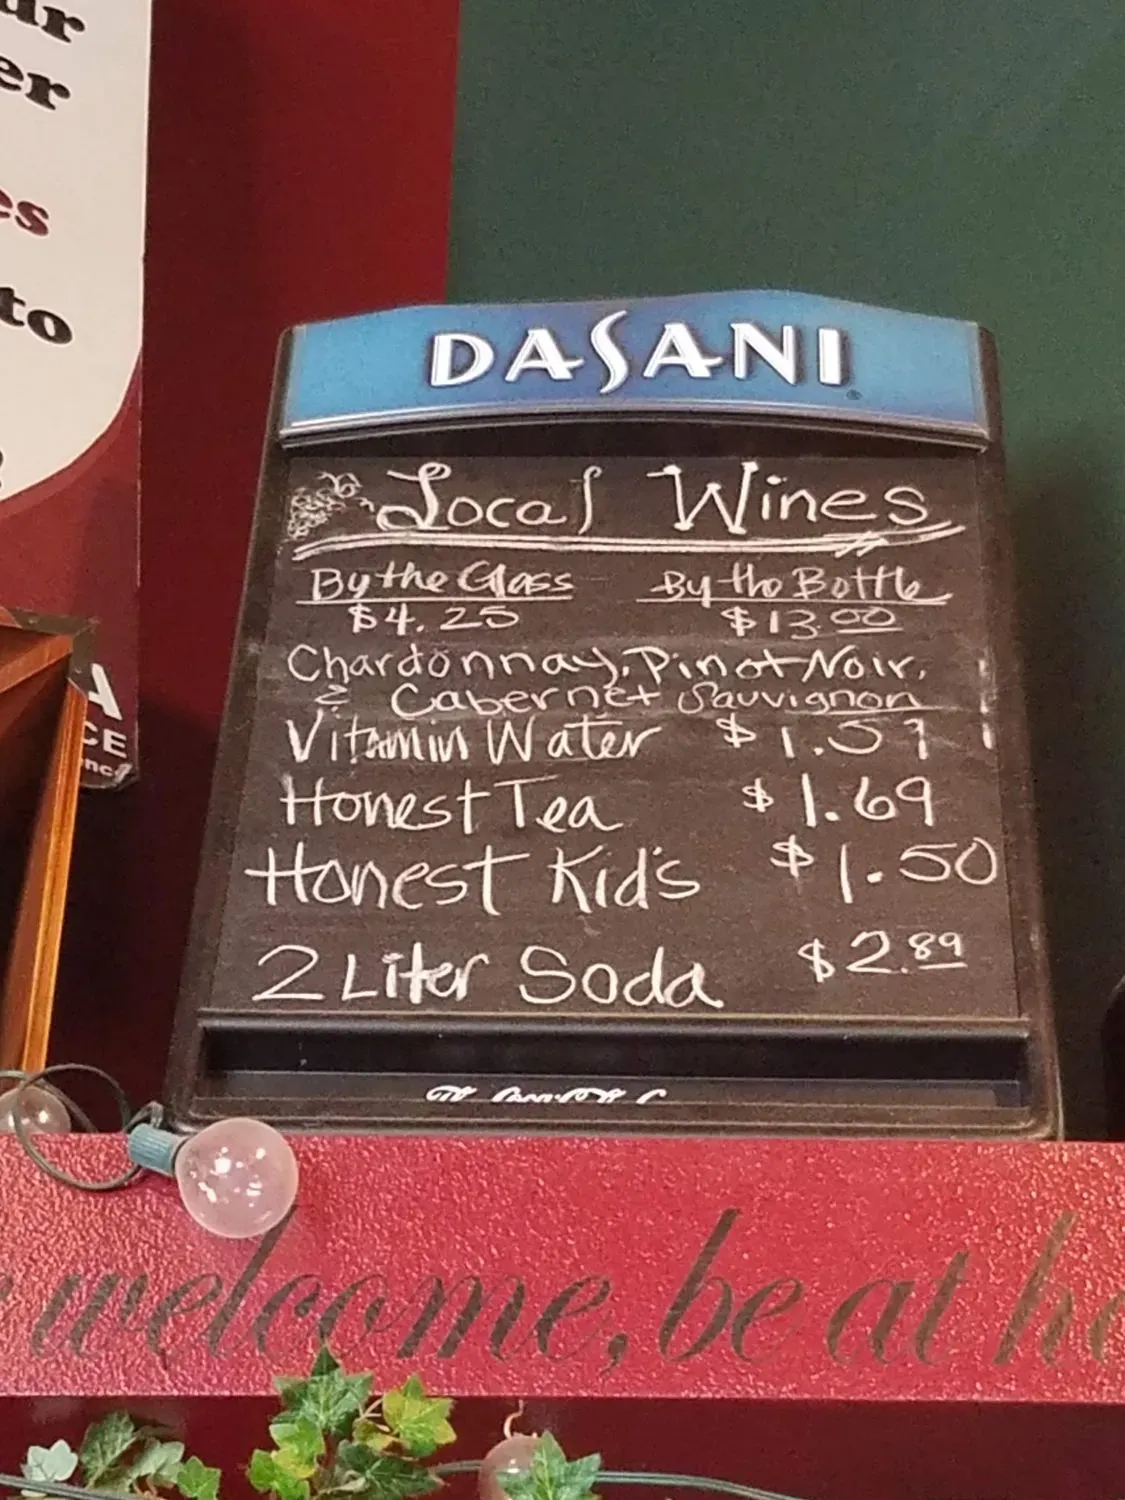 ur
er
es
to
A
CE
DASANI
Local Wines
By the Glass By the Bottle
$4.25 $13.00
Chardonnay, Pinot Noir,
& Cabernet Sauvignon
Vitamin Water $1.59
Honest Tea $1.69
Honest Kid's $1.50
2 Liter Soda $2.89
welcome, be at ho